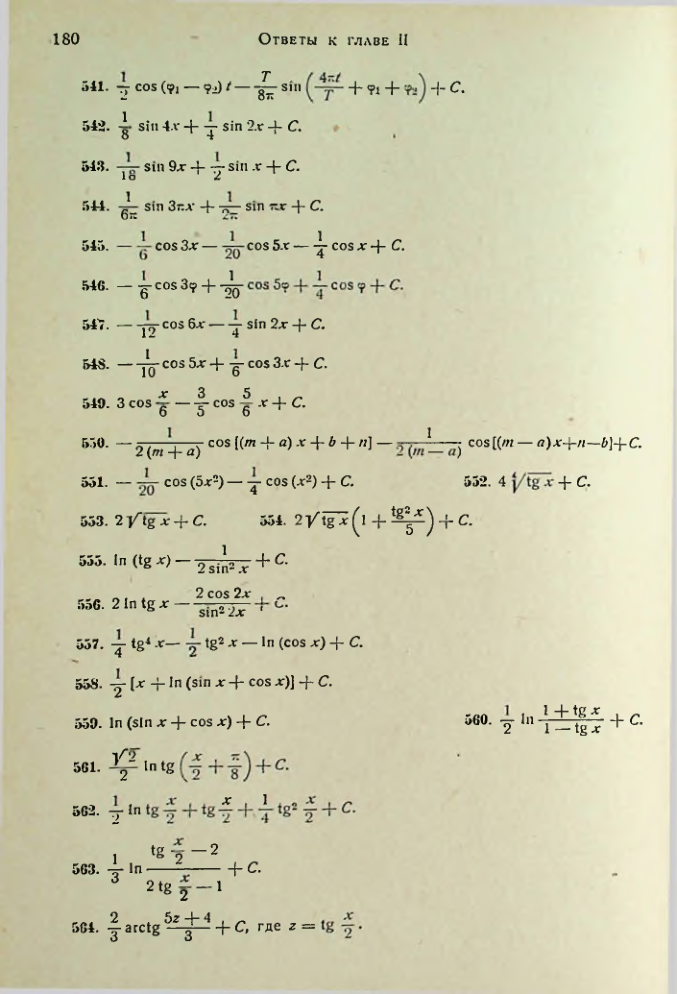 180 Ответы к главе II
541. \frac{1}{2} cos (φ₁ — φ₂) t — \frac{T}{8π} sin (\frac{4πt}{T} + φ₁ + φ₂) + C.
542. \frac{1}{8} sin 4x + \frac{1}{4} sin 2x + C.
543. \frac{1}{18} sin 9x + \frac{1}{2} sin x + C.
544. \frac{1}{6π} sin 3πx + \frac{1}{2π} sin πx + C.
545. — \frac{1}{6} cos 3x — \frac{1}{20} cos 5x — \frac{1}{4} cos x + C.
546. — \frac{1}{6} cos 3φ + \frac{1}{20} cos 5φ + \frac{1}{4} cos φ + C.
547. — \frac{1}{12} cos 6x — \frac{1}{4} sin 2x + C.
548. — \frac{1}{10} cos 5x + \frac{1}{6} cos 3x + C.
549. 3 cos \frac{x}{6} — \frac{3}{5} cos \frac{5}{6} x + C.
550. — \frac{1}{2 (m + a)} cos [(m + a) x + b + n] — \frac{1}{2 (m — a)} cos [(m — a) x + n — b] + C.
551. — \frac{1}{20} cos (5x²) — \frac{1}{4} cos (x²) + C. 552. 4 \sqrt[4]{tg x} + C.
553. 2 \sqrt{tg x} + C. 554. 2 \sqrt{tg x} (1 + \frac{tg² x}{5}) + C.
555. ln (tg x) — \frac{1}{2 sin² x} + C.
556. 2 ln tg x — \frac{2 cos 2x}{sin² 2x} + C.
557. \frac{1}{4} tg⁴ x — \frac{1}{2} tg² x — ln (cos x) + C.
558. \frac{1}{2} [x + ln (sin x + cos x)] + C.
559. ln (sin x + cos x) + C. 560. \frac{1}{2} ln \frac{1 + tg x}{1 — tg x} + C.
561. \frac{\sqrt{2}}{2} ln tg (\frac{x}{2} + \frac{π}{8}) + C.
562. \frac{1}{2} ln tg \frac{x}{2} + tg \frac{x}{2} + \frac{1}{4} tg² \frac{x}{2} + C.
563. \frac{1}{3} ln \frac{tg \frac{x}{2} — 2}{2 tg \frac{x}{2} — 1} + C.
564. \frac{2}{3} arctg \frac{5z + 4}{3} + C, где z = tg \frac{x}{2}.